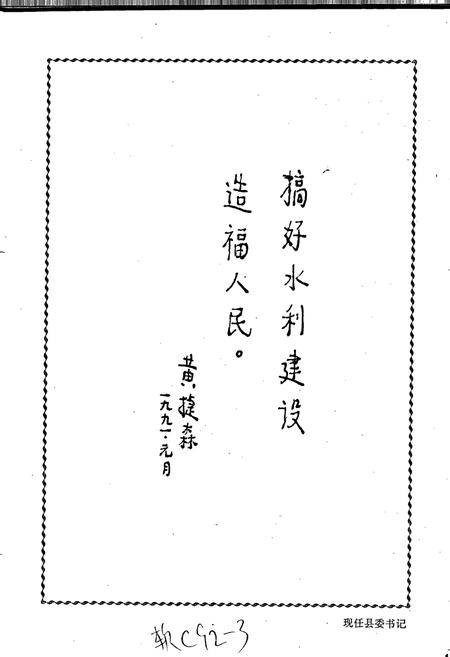 搞好水利建设
造福人民。
黄捷森
一九九一·元月
现任县委书记
软C92-3